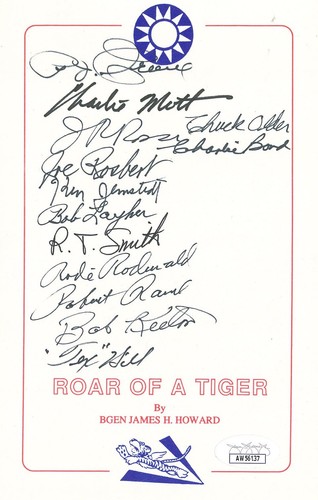 Charlie Mott
J R Rossi Chuck Older
Charlie Bond
Joe Rosbert
Ken Jernstedt
Bob Layher
R. T. Smith
Rode Rodewald
Robert
Bob Keeton
"Tex" Hill
ROAR OF A TIGER
By
BGEN JAMES H. HOWARD
JSA
AW56137